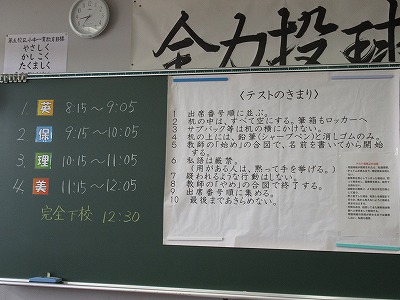 全力投球
やさしく
かしこく
たくましく
1 英 8:15～9:05
2 保 9:15～10:05
3. 理 10:15～11:05
4. 美 11:15～12:05
完全下校 12:30
〈テストのきまり〉
1 出席番号順に並ぶ。
2 机の中は、すべて空にする。筆箱もロッカーへ
3 サブバック等は机の横にかけない。
4 机の上には、鉛筆(シャープペン)と消しゴムのみ。
5 教師の「始め」の合図で、名前を書いてから開始
する。
6 私語は厳禁。
(用がある人は、黙って手を挙げる。)
7 疑われるような行動はしない。
8 教師の「やめ」の合図で終了する。
9 出席番号順に集める。
10 最後まであきらめない。